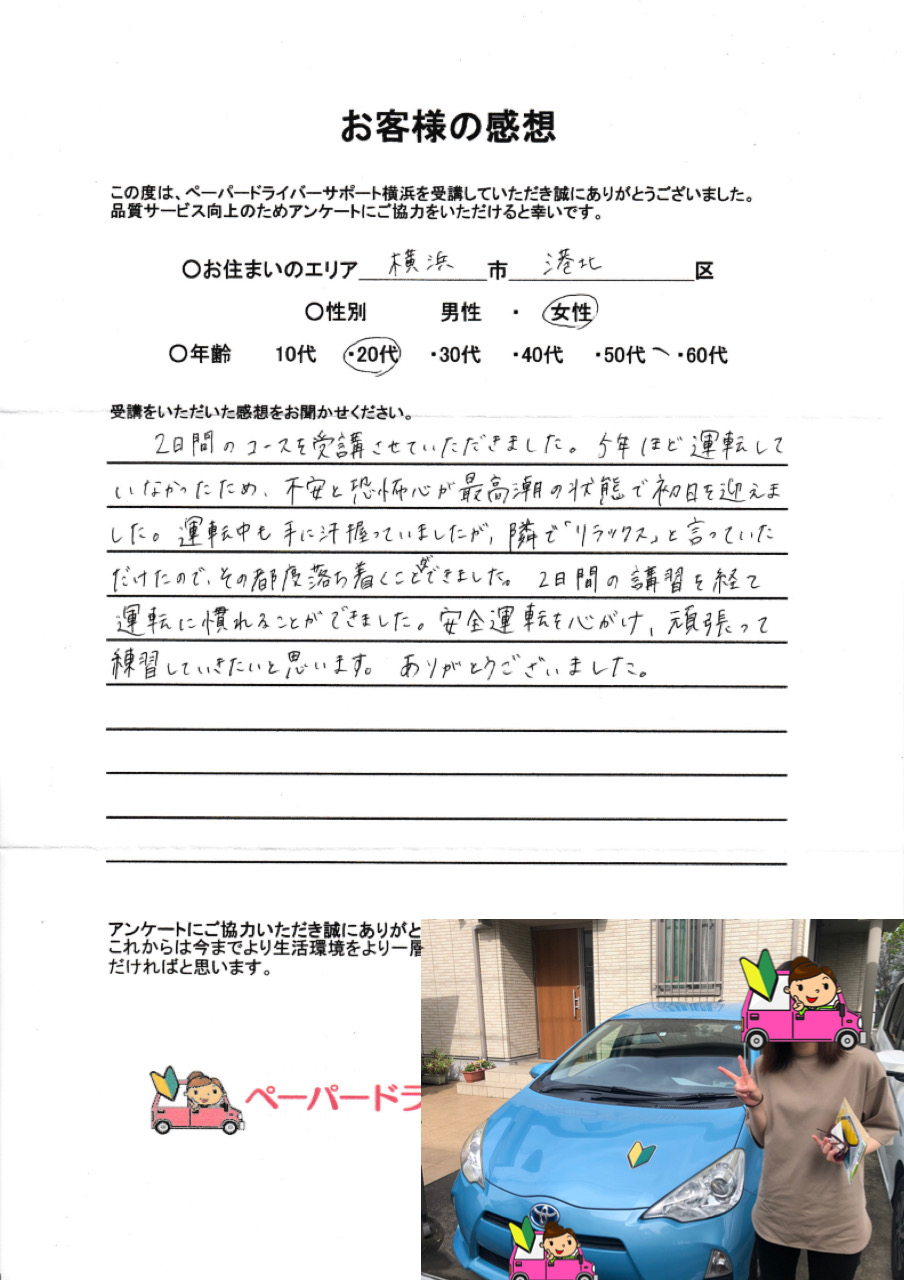 お客様の感想
この度は、ペーパードライバーサポート横浜を受講していただき誠にありがとうございました。
品質サービス向上のためアンケートにご協力をいただけると幸いです。
〇お住まいのエリア 横浜 市 港北 区
〇性別 男性 ・ 女性
〇年齢 10代 ・20代 ・30代 ・40代 ・50代 ・60代
受講をいただいた感想をお聞かせください。
2日間のコースを受講させていただきました。5年ほど運転して
いなかったため、不安と恐怖心が最高潮の状態で初日を迎えま
した。運転中も手に汗握っていましたが、隣で「リラックス」と言っていた
だけたので、その都度落ち着くことができました。2日間の講習を経て
運転に慣れることができました。安全運転を心がけ、頑張って
練習していきたいと思います。ありがとうございました。
アンケートにご協力いただき誠にありがと
これからは今までより生活環境をより一層
だければと思います。
ペーパードラ